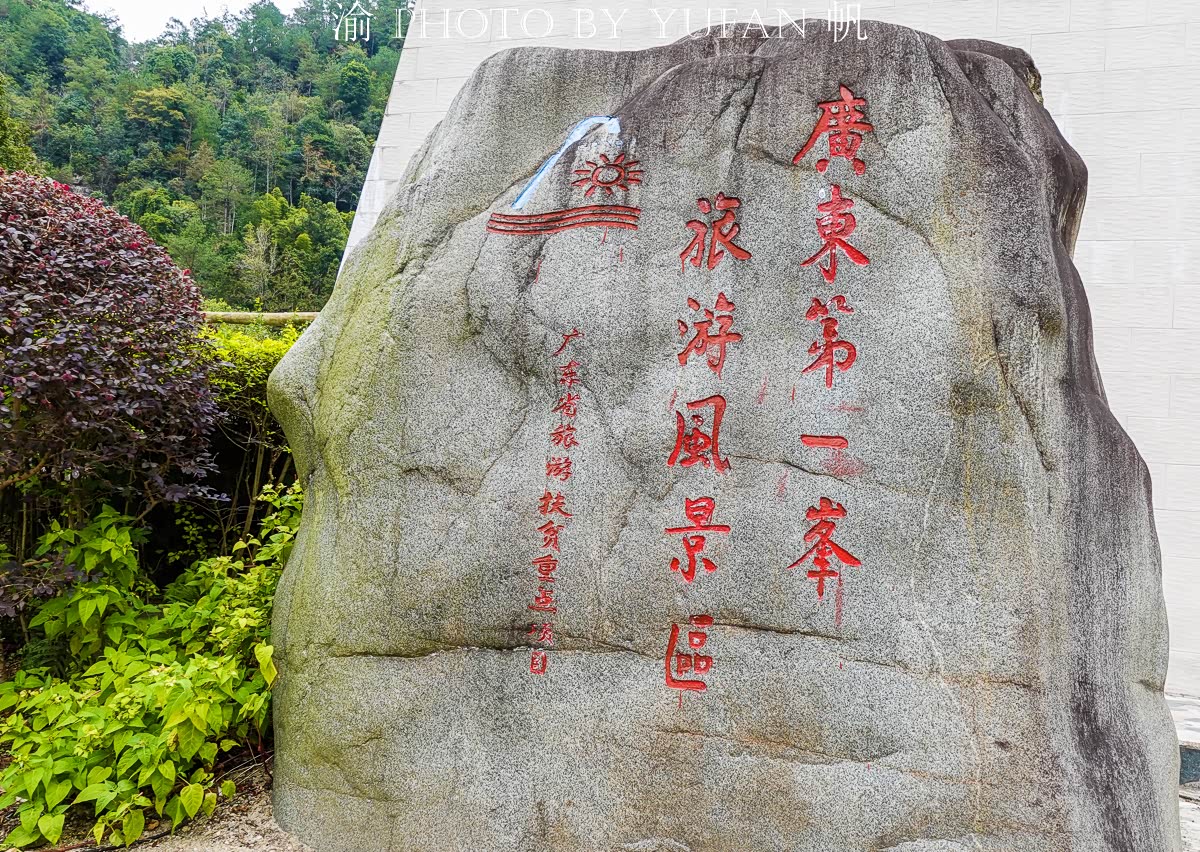 渝 PHOTO BY YUFAN 帆
廣東第一峯
旅游風景區
广东省旅游扶贫重点项目